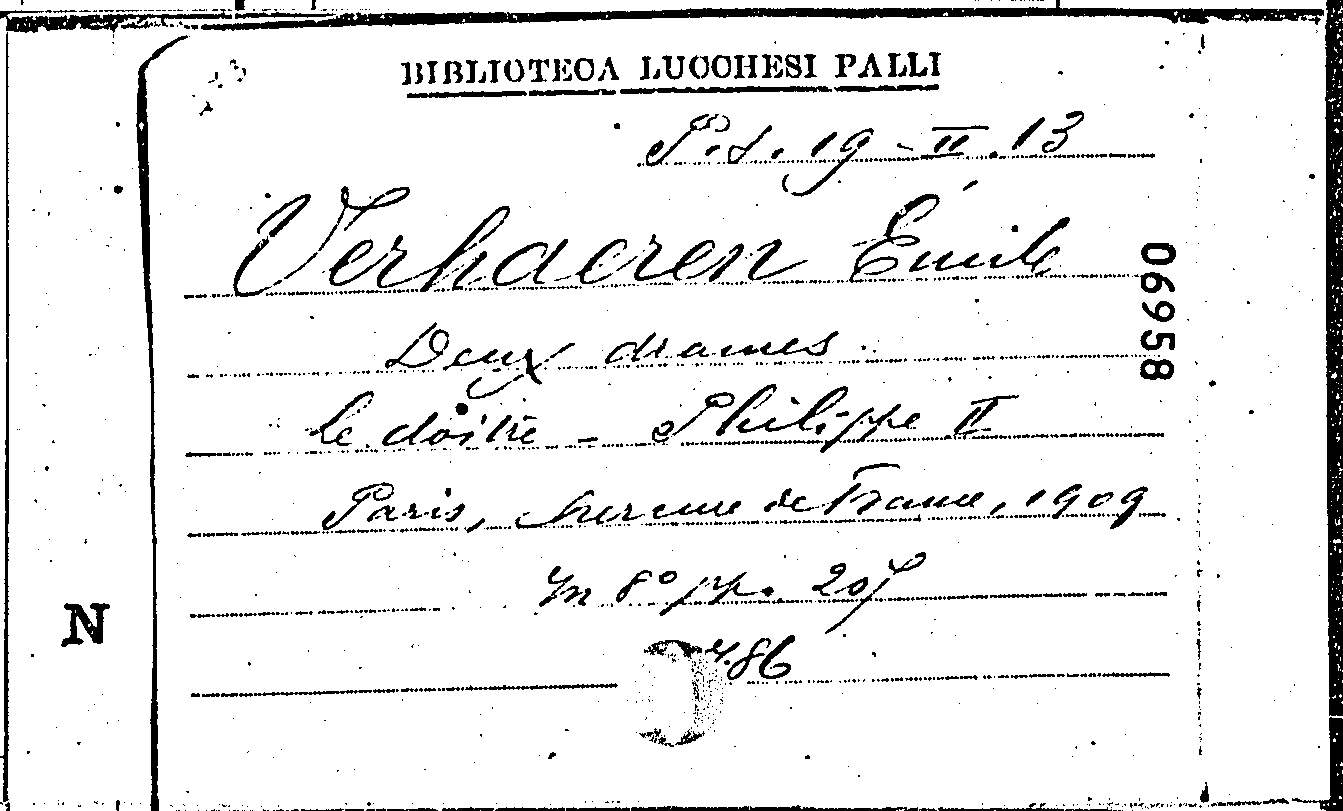 BIBLIOTECA LUCCHESI PALLI
P.s. 19-II.13
Verhaeren Émile
06958
Deux drames.
le cloître - Philippe II
Paris, Mercure de France, 1909
in 8° pp. 205
N
86